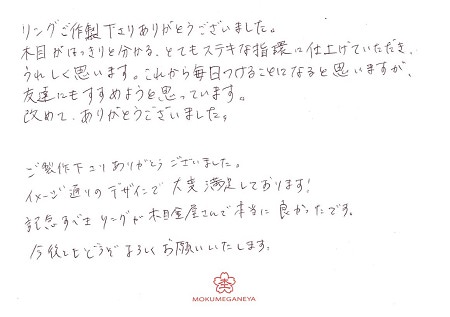 リングご作製下さりありがとうございました。
木目がはっきりと分かる、とてもステキな指環に仕上げていただき、
うれしく思います。これから毎日つけることになると思いますが、
友達にもすすめようと思っています。
改めて、ありがとうございました。
ご製作下さりありがとうございました。
イメージ通りのデザインで大変満足しております!
記念すべきリングが木目金屋さんで本当に良かったです。
今後ともどうぞよろしくお願いいたします。
MOKUMEGANEYA